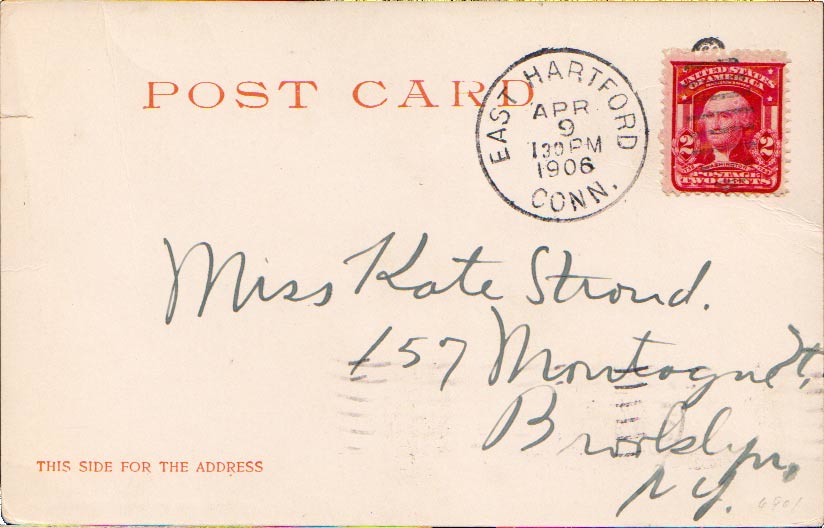 POST CARD
EAST HARTFORD
APR
9
1 30 PM
1906
CONN.
UNITED STATES
OF AMERICA
2 2
POSTAGE
TWO CENTS
Miss Kate Stroud.
157 Montague St.
Brooklyn,
N.Y.
THIS SIDE FOR THE ADDRESS